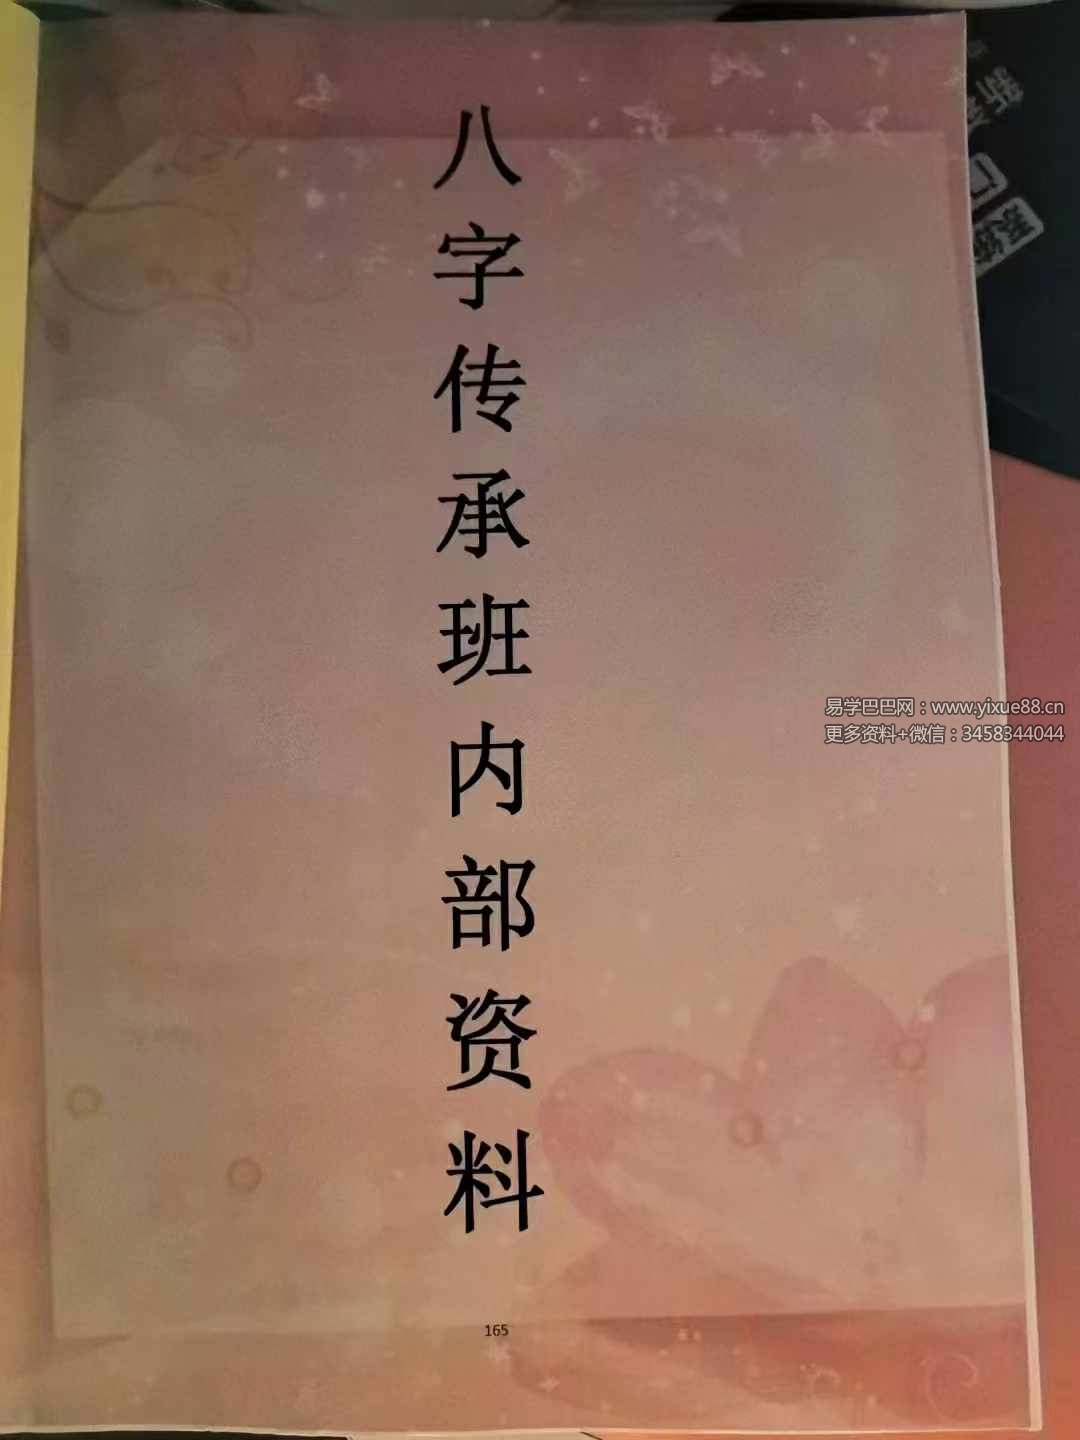 八字传承班内部资料
易学巴巴网：www.yixue88.cn
更多资料+微信：3458344044
165